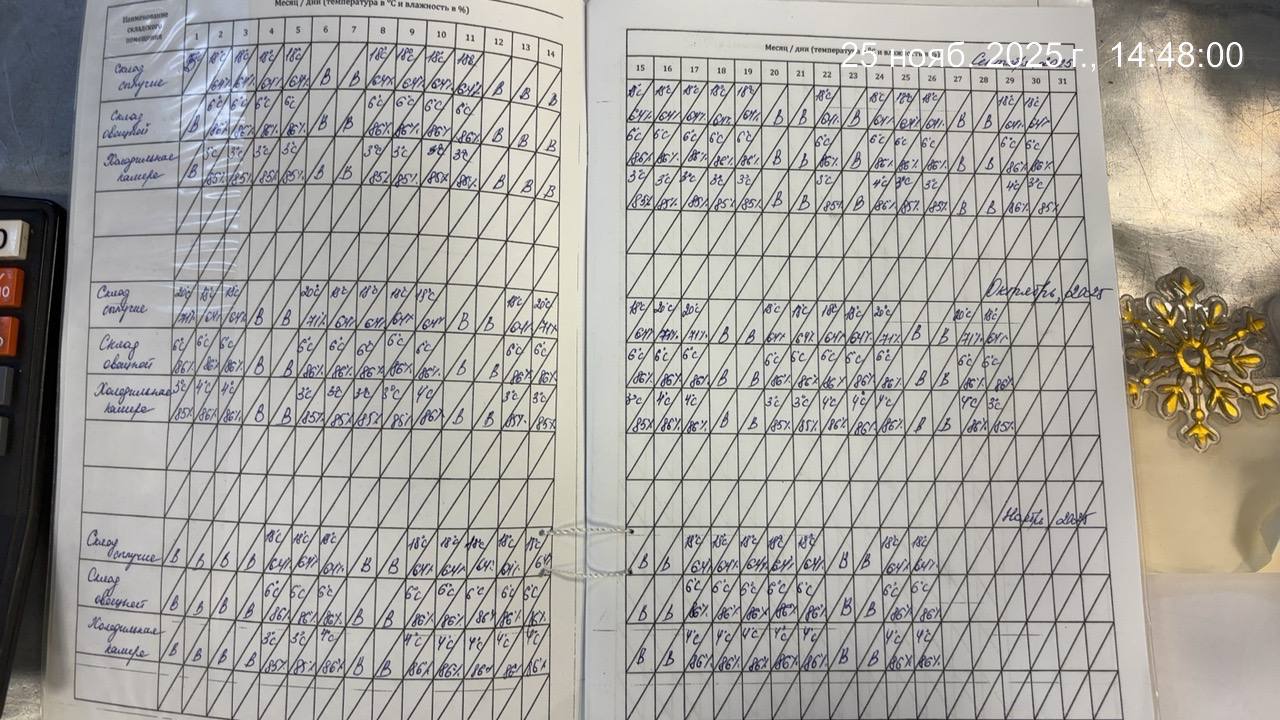 25 нояб. 2025 г., 14:48:00
Месяц / дни (температура в °С и влажность в %)
Наименование складского помещения
1 2 3 4 5 6 7 8 9 10 11 12 13 14
Склад сыпучие
18°С 18°С 18°С 18°С 18°С 18°С 18°С
64% 64% 64% 64% В В 64% 64% 64% 64% В В В
Склад овощной
6°С 6°С 6°С 6°С 6°С 6°С 6°С 6°С
В 86% 86% 86% 86% В В 86% 86% 86% 86% В В В
Холодильная камера
3°С 3°С 3°С 3°С 3°С 3°С 3°С 3°С
В 85% 85% 85% 85% В В 85% 85% 85% 85% В В В
Склад сыпучие
20°С 18°С 18°С 20°С 18°С 18°С 18°С 18°С 18°С 20°С
71% 64% 64% В В 71% 64% 64% 64% 64% В В 64% 71%
Склад овощной
6°С 6°С 6°С 6°С 6°С 6°С 6°С 6°С 6°С 6°С
86% 86% 86% В В 86% 86% 86% 86% 86% В В 86% 86%
Холодильная камера
3°С 4°С 4°С 3°С 3°С 3°С 3°С 4°С 3°С 3°С
85% 86% 86% В В 85% 85% 85% 85% 86% В В 85% 85%
Склад сыпучие
18°С 18°С 18°С 18°С 18°С 18°С 18°С 18°С
В В В В 64% 64% 64% В В 64% 64% 64% 64% 64%
Склад овощной
6°С 6°С 6°С 6°С 6°С 6°С 6°С 6°С
В В В В 86% 86% 86% В В 86% 86% 86% 86% 86%
Холодильная камера
3°С 3°С 4°С 4°С 4°С 4°С 4°С 4°С
В В В В 85% 85% 86% В В 86% 86% 86% 86% 86%
Месяц / дни (температура в °С и влажность в %)
15 16 17 18 19 20 21 22 23 24 25 26 27 28 29 30 31
18°С 18°С 18°С 18°С 18°С 18°С 18°С 18°С 18°С 18°С 18°С
64% 64% 64% 64% 64% В В 64% В 64% 64% 64% В В 64% 64%
6°С 6°С 6°С 6°С 6°С 6°С 6°С 6°С 6°С 6°С 6°С
86% 86% 86% 86% 86% В В 86% В 86% 86% 86% В В 86% 86%
3°С 3°С 3°С 3°С 3°С 3°С 4°С 3°С 3°С 4°С 3°С
85% 85% 85% 85% 85% В В 85% В 86% 85% 85% В В 86% 85%
Октябрь, 2025
18°С 20°С 20°С 18°С 18°С 18°С 18°С 20°С 20°С 18°С
64% 71% 71% В В 64% 64% 64% 64% 71% В В 71% 64%
6°С 6°С 6°С 6°С 6°С 6°С 6°С 6°С 6°С 6°С
86% 86% 86% В В 86% 86% 86% 86% 86% В В 86% 86% 86%
3°С 4°С 4°С 3°С 3°С 4°С 4°С 4°С 4°С 3°С
85% 86% 86% В В 85% 85% 86% 86% 86% В В 86% 85%
Ноябрь, 2025
18°С 18°С 18°С 18°С 18°С 18°С 18°С
В В 64% 64% 64% 64% 64% В В 64% 64%
6°С 6°С 6°С 6°С 6°С 6°С 6°С
В В 86% 86% 86% 86% 86% В В 86% 86%
4°С 4°С 4°С 4°С 4°С 4°С 4°С
В В 86% 86% 86% 86% 86% В В 86% 86%